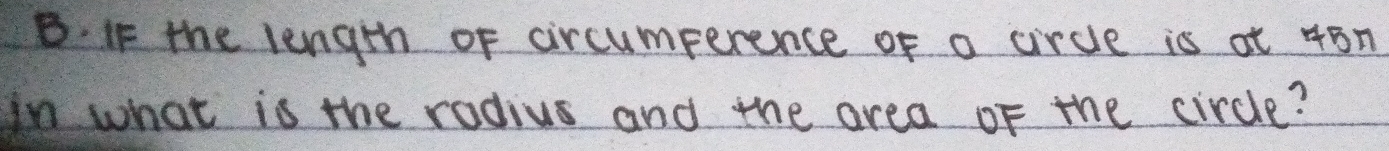 B. IF the length OF circumference OF a circle is at 45π
in what is the radius and the area OF the circle?